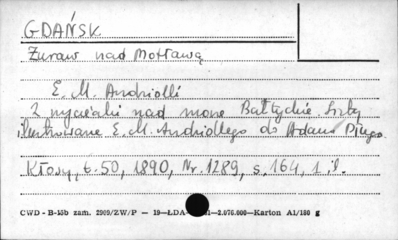 GDAŃSK.
Żuraw nad Motławą
E. M. Andriolli
Z wycieczki nad morze Bałtyckie. Listy
ilustrowane E. M. Andriollego do Adama Pługa.
Kłosy, t. 50, 1890, Nr. 1289, s. 164, 1 il.
CWD - B-15b zam. 2909/ZW/P — 19—ŁDA 1—2.076.000—Karton A1/180 g